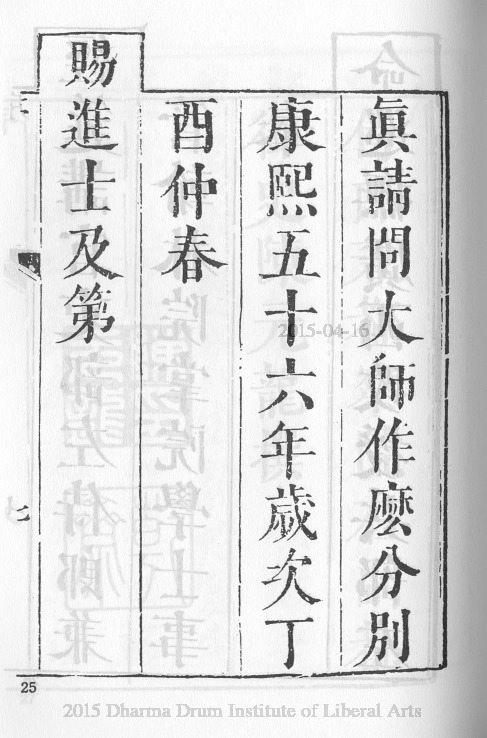 真請問大師作麽分別
康熙五十六年歲次丁
酉仲春
賜進士及第
七
25
2015-04-16
2015 Dharma Drum Institute of Liberal Arts